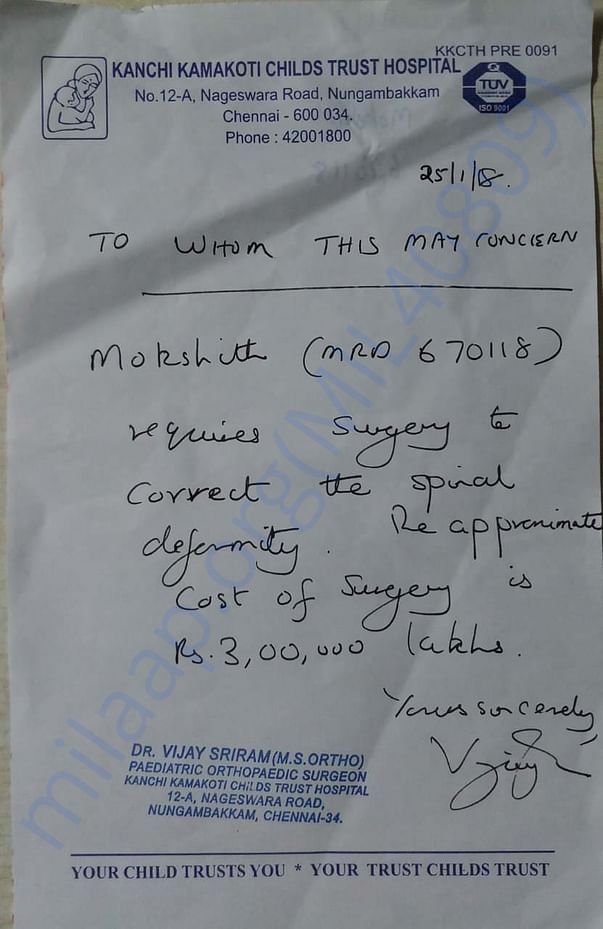 KKCTH PRE 0091
KANCHI KAMAKOTI CHILDS TRUST HOSPITAL
No.12-A, Nageswara Road, Nungambakkam
Chennai - 600 034.
Phone : 42001800
TUV
ISO 9001
25/1/18.
TO WHOM THIS MAY CONCERN
Mokshith (MRD 670118)
requires surgery to
correct the spinal
deformity. The approximate
cost of surgery is
Rs. 3,00,000 lakhs.
Yours sincerely,
DR. VIJAY SRIRAM (M.S.ORTHO)
PAEDIATRIC ORTHOPAEDIC SURGEON
KANCHI KAMAKOTI CHILDS TRUST HOSPITAL
12-A, NAGESWARA ROAD,
NUNGAMBAKKAM, CHENNAI-34.
YOUR CHILD TRUSTS YOU * YOUR TRUST CHILDS TRUST
milaap.org(MIL40809)